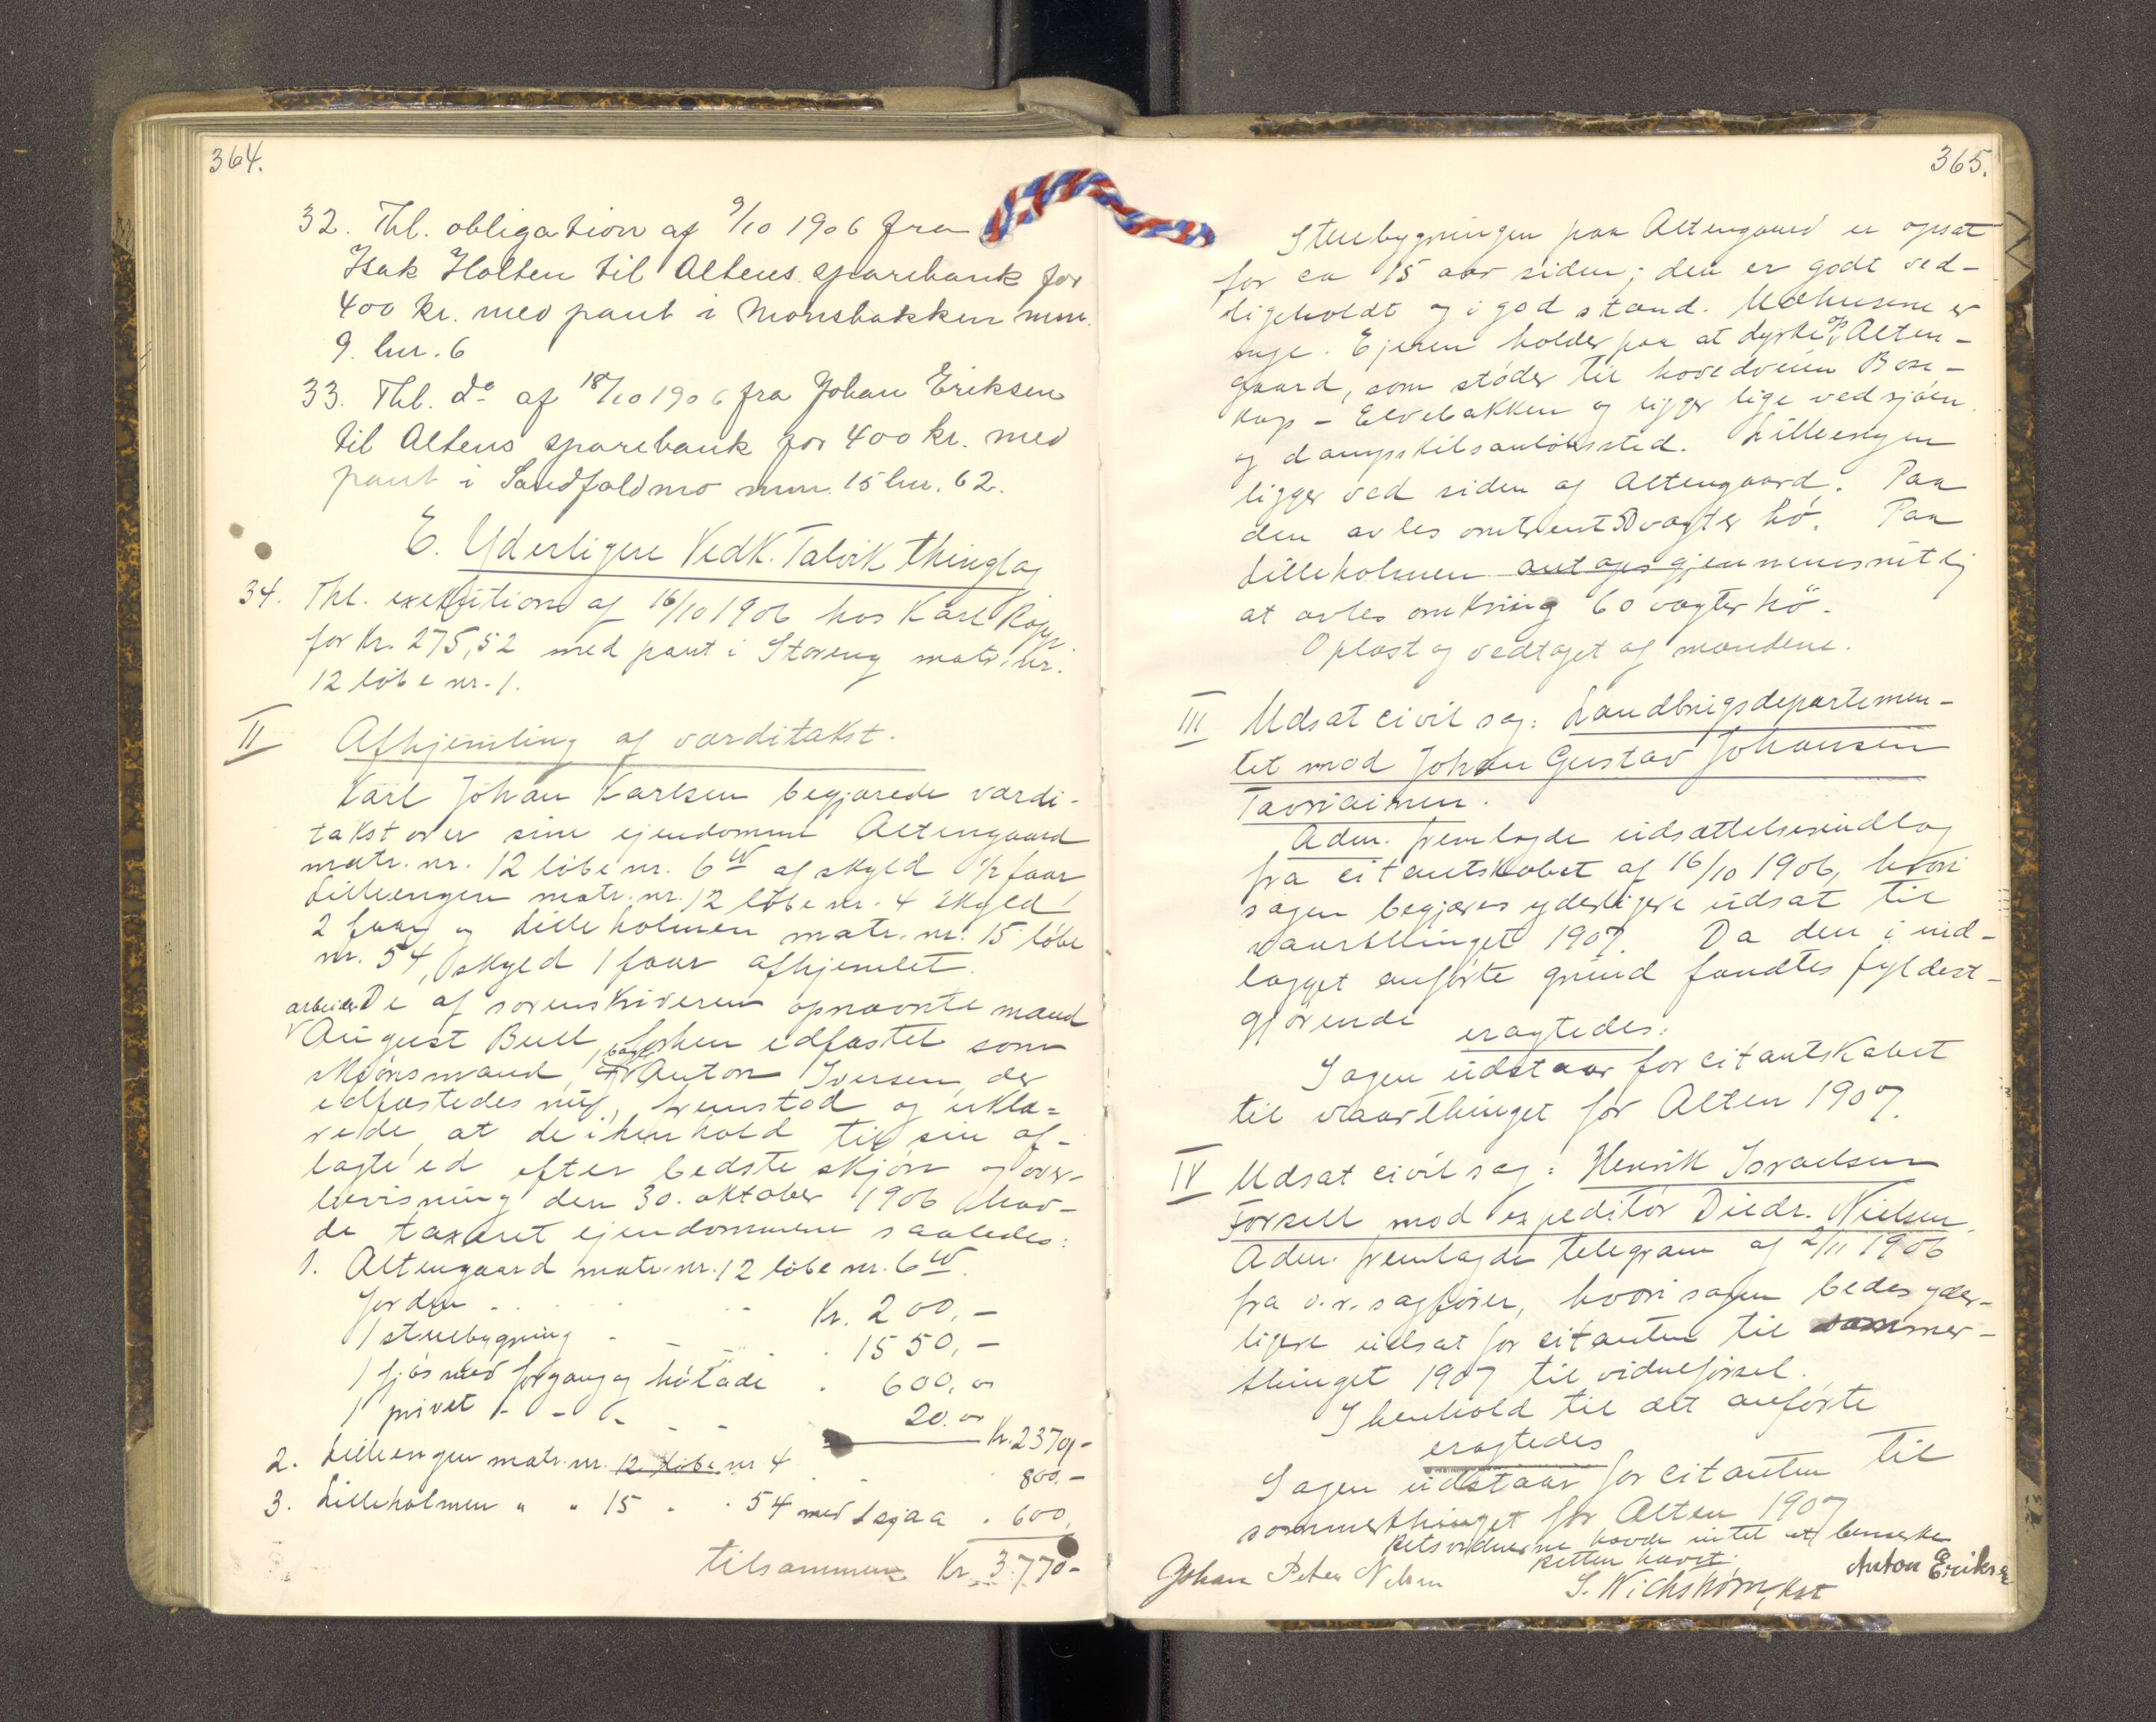 364.
32. Thl. obligation af 9/10 1906 fra
Isak Holten til Altens sparebank for
400 kr. med pant i Monsbakken mnr.
9. lnr. 6
33. Thl. do af 18/10 1906 fra Johan Eriksen
til Altens sparebank for 400 kr. med
pant i Sandfaldmo mnr. 15 lnr. 62.
E. Yderligere Vedk. Talvik thinglag
34. Thl. exekution af 16/10 1906 hos Karl
for kr. 275,52 med pant i Storeng matr. nr.
12 löbe nr. 1.
II Afhjemling af værditakst.
Karl Johan Karlsen begjærede værdi-
takst over sine ejendomme Altengaard
matr. nr. 12 löbe nr. 6 af skyld 1/2 faar
Lilleengen matr. nr. 12 löbe nr. 4 skyld
2 faar og Lilleholmen matr. nr. 15 löbe
nr. 54, skyld 1 faar afhjemlet.
De af sorenskriveren opnævnte mænd
arbeider August Bull, forhen edfæstet som
skjönsmand, Anton Iversen, der
edfæstedes nu, fremstod og erklæ-
rede, at de i henhold til sin af-
lagte ed efter bedste skjön og over-
bevisning den 30. oktober 1906 hav-
de taxeret ejendommene saaledes:
1. Altengaard matr. nr. 12 löbe nr. 6
Jorden . . . . Kr. 200,-
1 stuebygning - - . 1550,-
1 fjös med forgang og hölade . 600,00
1 privet - - - - - 20.00
Kr. 2370,-
2. Lilleengen matr. nr. 12 löbe nr 4 . . 800,-
3. Lilleholmen " " 15 . . 54 med 1 sjaa . 600,
tilsammen Kr. 3.770-
365.
Stuebygningen paa Altengaard er opsat
for ca 15 aar siden; den er godt ved-
ligeholdt og i god stand. Udhusene er
nye. Ejeren holder paa at dyrke op Alten-
gaard, som stöder til hovedveien Bose-
kop - Elvebakken og ligger lige ved sjöen
og dampskibsanlöbssted. Lilleengen
ligger ved siden af Altengaard. Paa
den avles omtrent 50 vogter hö. Paa
Lilleholmen antages gjennemsnitlig
at avles omkring 60 vogter hö.
Oplæst og vedtaget af mændene.
III Udsat civil sag: Landbrugsdepartemen-
tet mod Johan Gustav Johansen
Tavniainen.
Adm. fremlagde udsættelsesindlæg
fra citantskabet af 16/10 1906, hvori
sagen begjæres yderligere udsat til
vaarthinget 1907. Da den i ind-
lægget anförte grund fandtes fyldest-
gjörende
eragtedes:
Sagen udstaar for citantskabet
til vaarthinget for Alten 1907.
IV Udsat civil sag: Henrik Israelsen
Forsell mod expeditör Diedr. Nielsen.
Adm. fremlagde telegram af 2/11 1906
fra o.r. sagförer, hvori sagen bedes yder-
ligere udsat for citanten til sommer-
thinget 1907 til vidneförsel.
I henhold til det anförte
eragtedes
Sagen udstaar for citanten til
sommerthinget for Alten 1907
Retsvidnerne havde intet at bemerke
Retten hævet.
Johan Peter Nilsen
S. Wichström, kst
Anton Eriksen